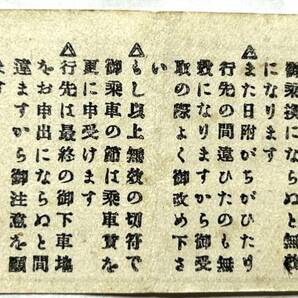 御乘換になら
になります
△また日附がちがひたり
行先の間違ひたのも無
效になりますから御受
取の際よく御改め下さ
い
△もし以上無效の切符で
御乘車の節は乘車賃を
更に申受けます
△行先は最終の御下車地
をお申出にならぬと間
違ますから御注意を願
ます